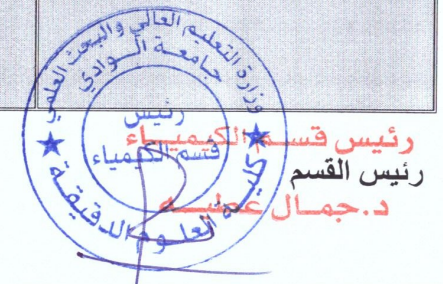 وزارة التعليم العالي والبحث العلمي
جامعة الوادي
رئيس
قسم الكيمياء
كلية العلوم الدقيقة
رئيس قسم الكيمياء
رئيس القسم
د.جمال عطيه